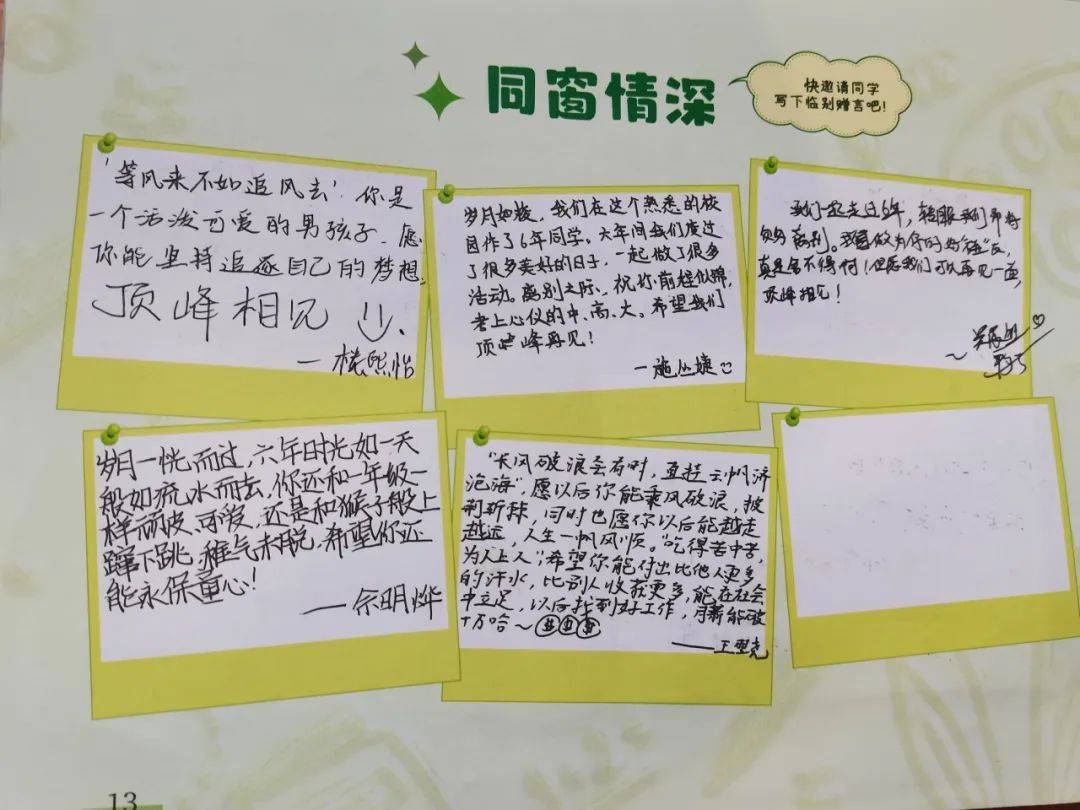 同窗情深
快邀请同学
写下临别赠言吧!
'等风来不如追风去'你是
一个活泼可爱的男孩子,愿
你能坚持追逐自己的梦想,
顶峰相见
一楼熙怡
岁月如梭,我们在这个熟悉的校
园作了6年同学。大年间我们度过
了很多美好的日子,一起做了很多
活动。离别之际、祝你前程似锦,
考上心仪的中、高、大。希望我们
顶峰再见!
一施丛婕
我们一起走过6年,转眼我们即将
离别。
真是舍不得你!但愿我们可以再见一面,
顶峰相见!
岁月一恍而过,六年时光如一天
般如流水而去,你还和一年级一
样顽皮、可爱,还是和猴子般上
蹿下跳,稚气未脱,希望你还
能永保童心!
——佘明烨
"长风破浪会有时,直挂云帆济
沧海",愿以后你能乘风破浪,披
荆斩棘,同时也愿你以后能越走
越远,人生一帆风顺。"吃得苦中苦,
为人上人",希望你能付出比他人更多
的汗水,比别人收获更多,能在社会
中立足,以后找到好工作,月薪能破
十万哈~
——王
13